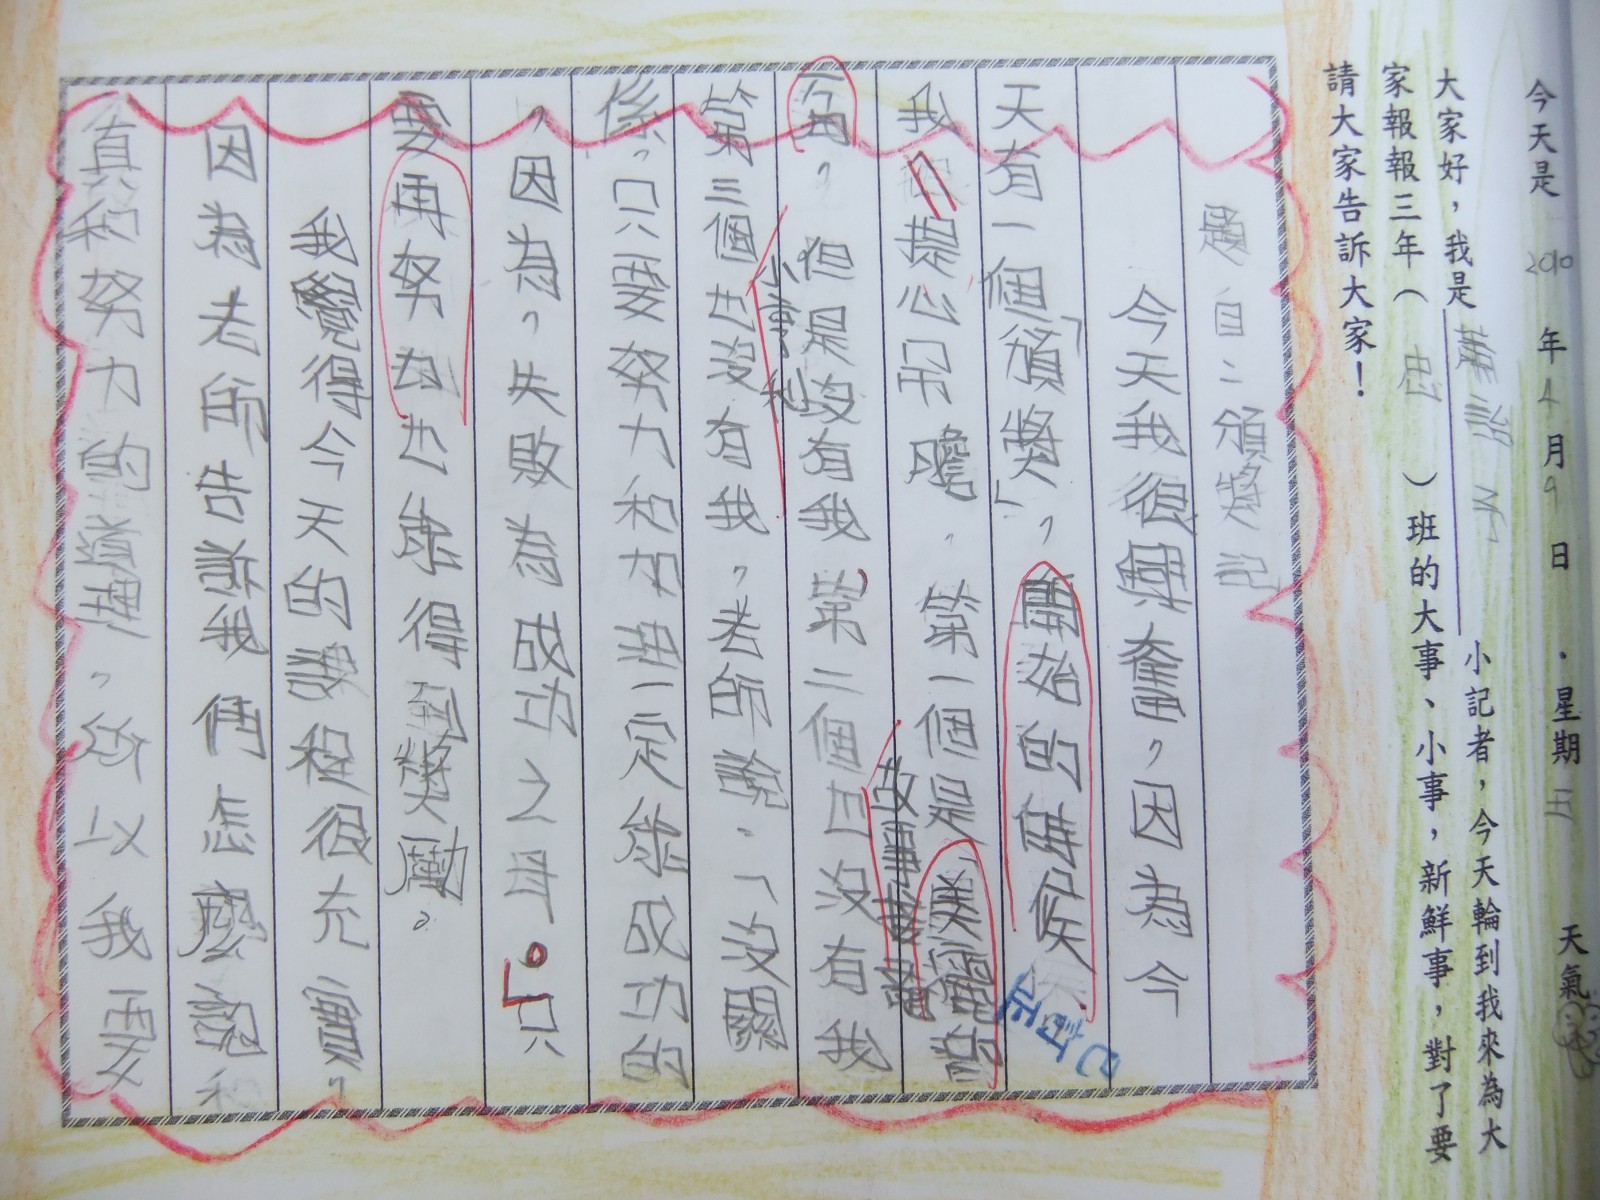 今天是 2010 年 4 月 9 日,星期 五 天氣
大家好,我是 小記者,今天輪到我來為大
家報報三年( 忠 )班的大事、小事,新鮮事,對了要
請大家告訴大家!
題目:頒獎記
今天我很興奮,因為今
天有一個「頒獎」,開始的時候
我 提心吊膽。第一個是「美麗的
故事書籍
句」,但是沒有我第二個也沒有我
第三個也沒有我,老師說:「沒關
係,只要努力和加油一定能成功的
,因為,失敗為成功之母。」只
要再努力 也能得到獎勵。
我覺得今天的課程很充實,
因為老師告訴我們怎麼認
真和努力的道理,所以我要